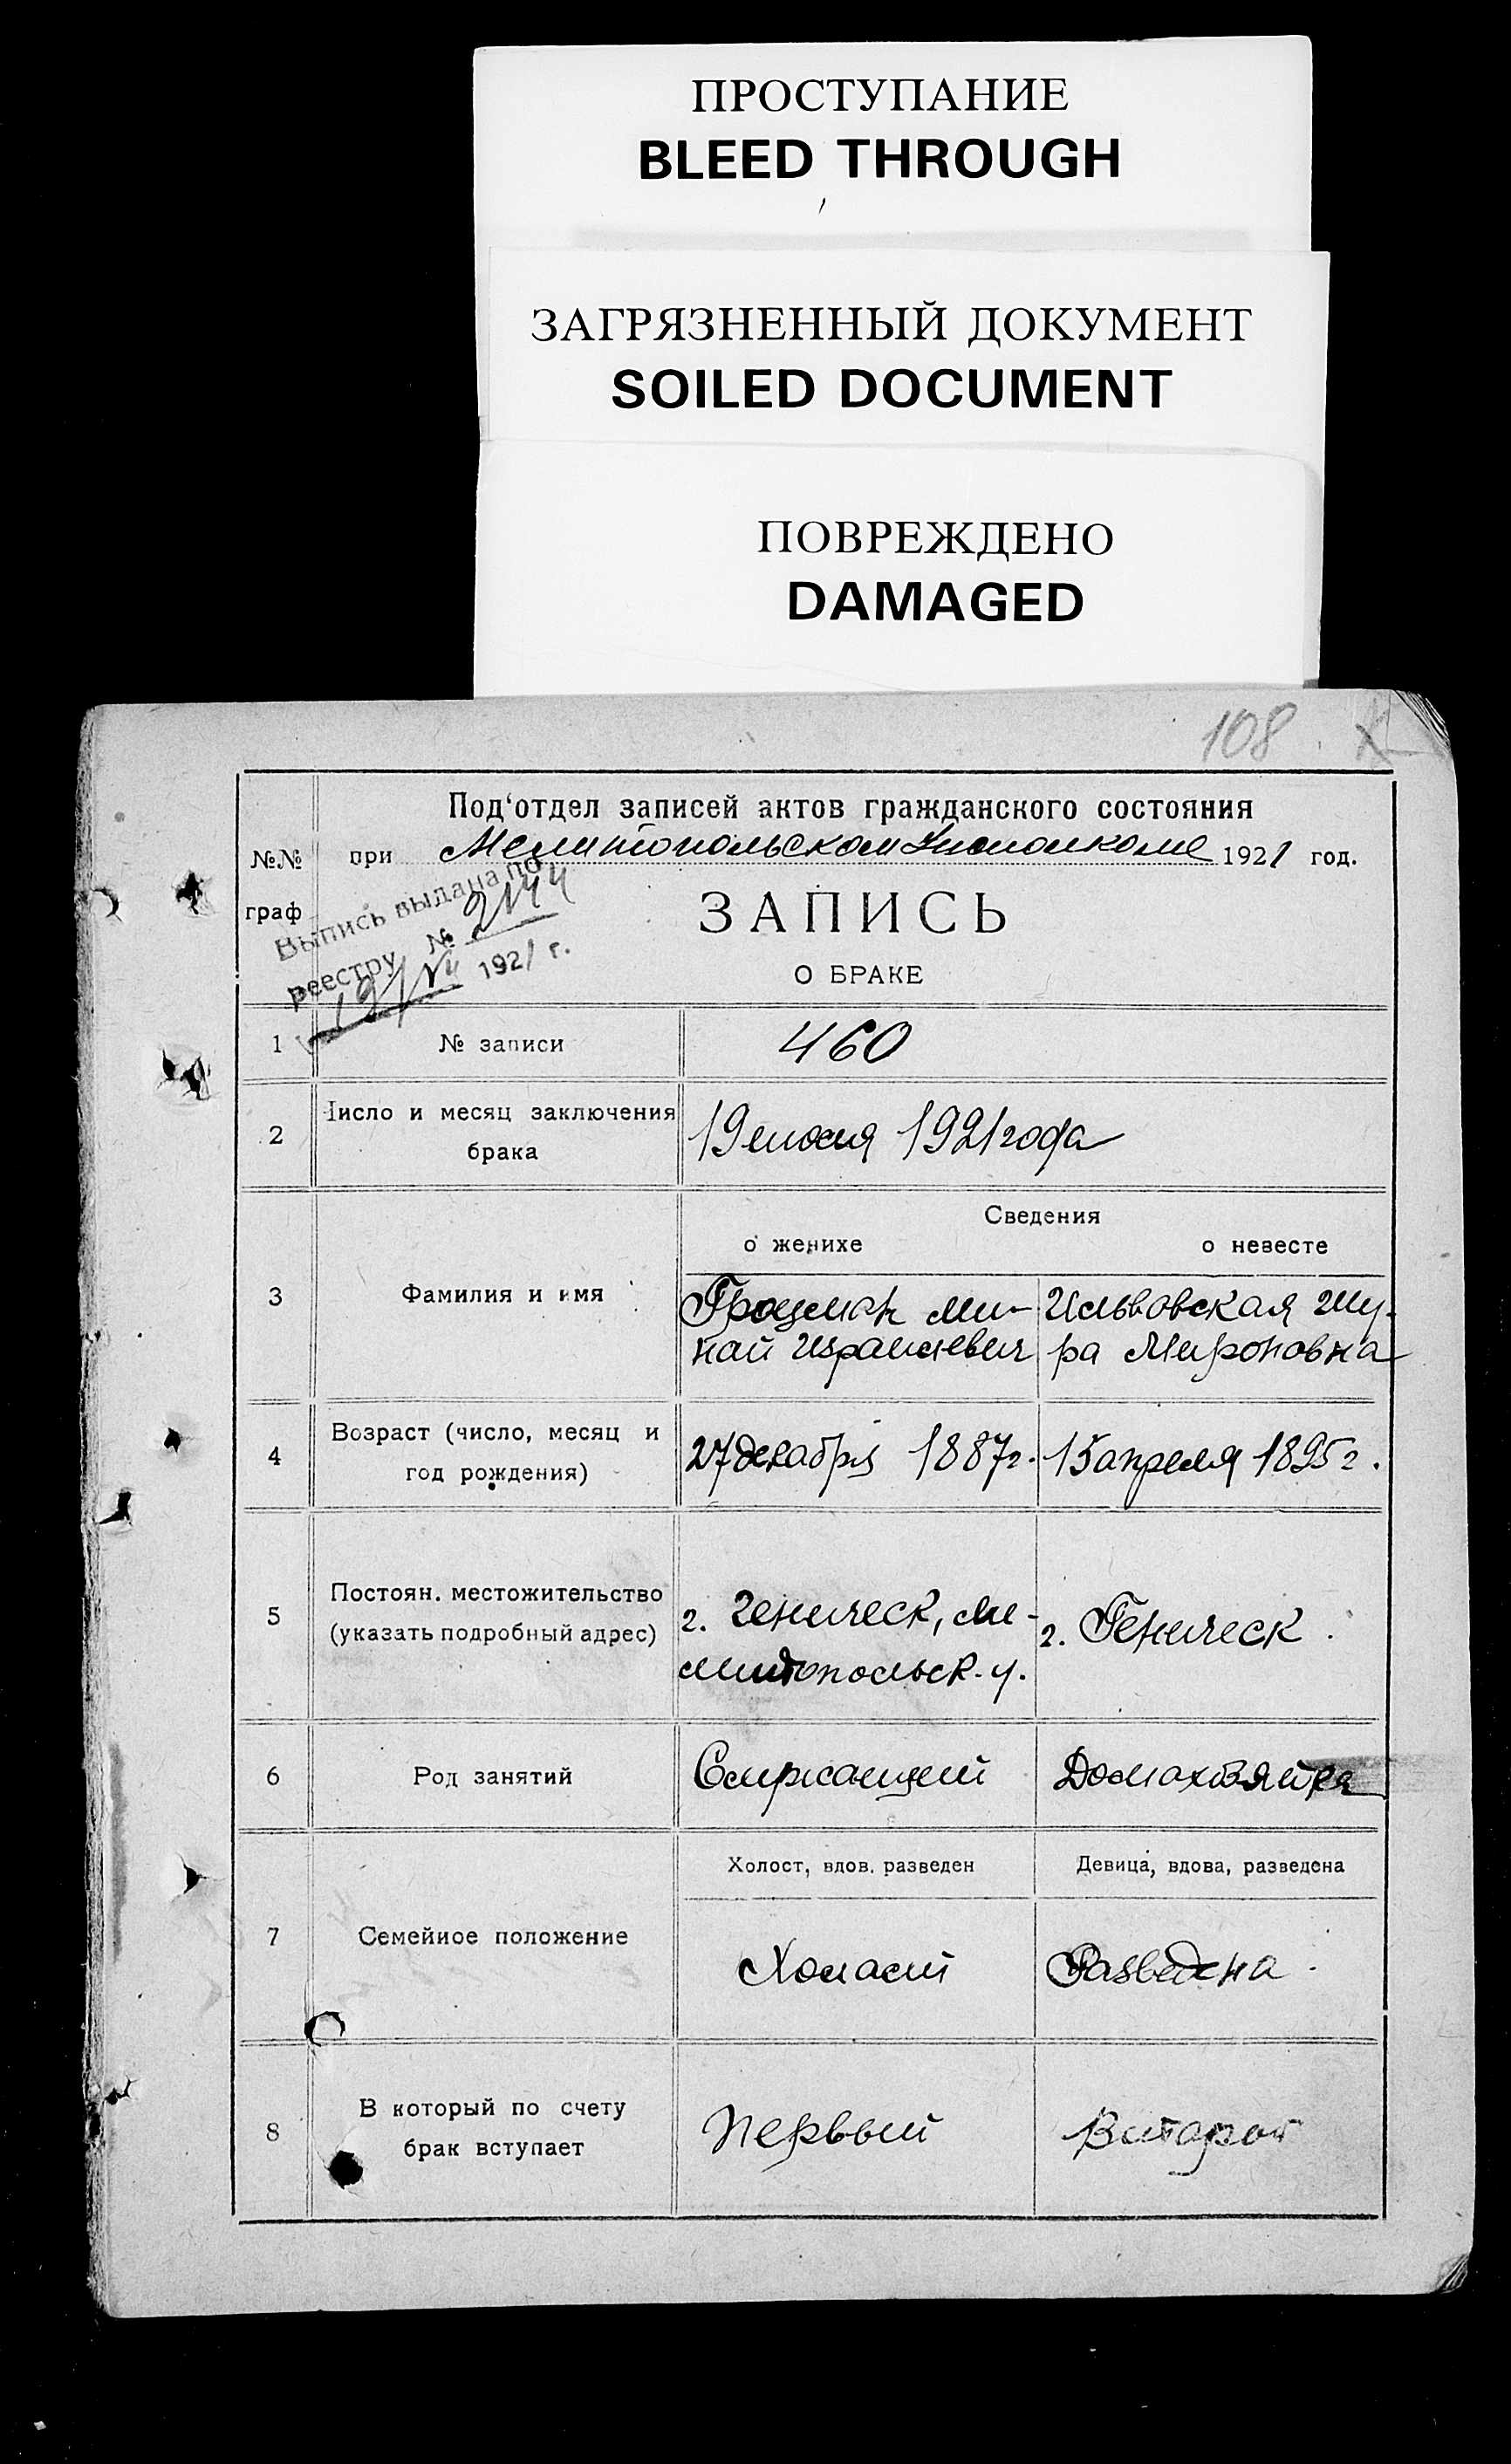 ПРОСТУПАНИЕ
BLEED THROUGH
ЗАГРЯЗНЕННЫЙ ДОКУМЕНТ
SOILED DOCUMENT
ПОВРЕЖДЕНО
DAMAGED
108
№№ граф
Под‘отдел записей актов гражданского состояния
при Мелитопольском 1921 год.
Выпись выдана по
реестру № 2144
19/VII 1921 г.
ЗАПИСЬ
О БРАКЕ
1 № записи 460
2 Число и месяц заключения
брака
19 июля 1921 года
Сведения
о женихе о невесте
3 Фамилия и имя
Гроцман Ми-
най Израилевич
Ильвовская Шу-
ра Мироновна
4 Возраст (число, месяц и
год рождения)
27 декабря 1887 г. 15 апреля 1895 г.
5 Постоян. местожительство
(указать подробный адрес)
г. Геническ, Ме-
литопольск. у.
г. Геническ
6 Род занятий Служащий Домохозяйка
Холост, вдов. разведен Девица, вдова, разведена
7 Семейное положение Холост Разведена
8 В который по счету
брак вступает
Первый Второй